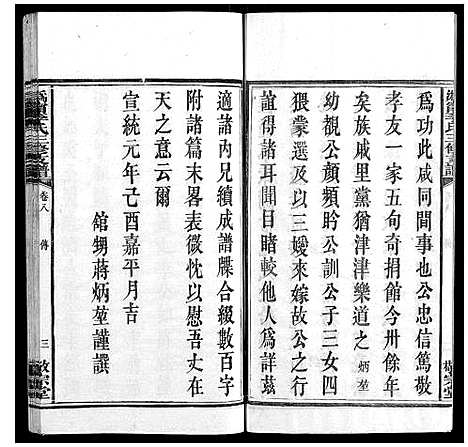 為功此咸同間事也公忠信篤敬
孝友一家五旬奇捐館今卅餘年
矣族戚里黨猶津津樂道之炳堃
幼覩公顏頻聆公訓公子三女四
猥蒙選及以三媛來嫁故公之行
誼得諸見聞目睹較他人為詳茲
適諸內兄續成譜牒合綴數百字
附諸篇末畧表微忱以慰吾丈在
天之意云爾
宣統元年己酉嘉平月吉
館甥蔣炳堃謹譔
李氏三修支譜
卷八
傳
三
敬宗堂